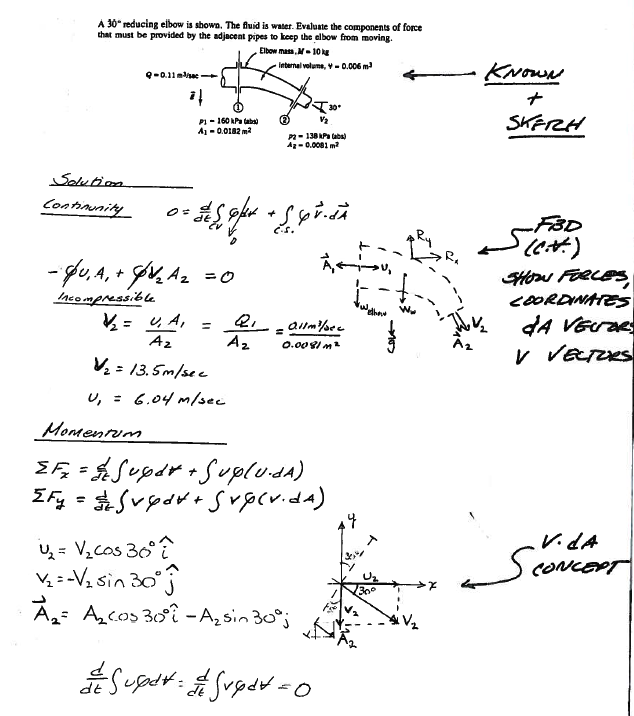 A 30° reducing elbow is shown. The fluid is water. Evaluate the components of force
that must be provided by the adjacent pipes to keep the elbow from moving.
Elbow mass, M = 10 kg
Internal volume, V = 0.006 m³
Q = 0.11 m³/sec
g
30°
① ② V₂
p1 = 160 kPa (abs)
A1 = 0.0182 m²
p2 = 138 kPa (abs)
A2 = 0.0081 m²
KNOWN
+
SKETCH
Solution
Continuity 0 = d/dt ∫ ρdV + ∫ ρ V⃗·dA⃗
C.V. 0 C.S.
-ρu₁A₁ + ρV₂A₂ = 0
Incompressible
V₂ = u₁A₁/A₂ = Q₁/A₂ = 0.11m³/sec / 0.0081m²
V₂ = 13.5m/sec
u₁ = 6.04 m/sec
A⃗₁ u₁ Ry Rx
Welbow Ww g V₂ A⃗₂
FBD
(C.V.)
SHOW FORCES,
COORDINATES
dA VECTORS
V VECTORS
Momentum
ΣFx = d/dt ∫uρdV + ∫uρ(U·dA)
ΣFy = d/dt ∫vρdV + ∫vρ(V·dA)
u₂ = V₂cos30° î
v₂ = -V₂sin30° ĵ
A⃗₂ = A₂cos30°î - A₂sin30°j
y
30°
u₂ x
30°
v₂ V₂
A⃗₂
V·dA
CONCEPT
d/dt ∫uρdV = d/dt ∫vρdV = 0